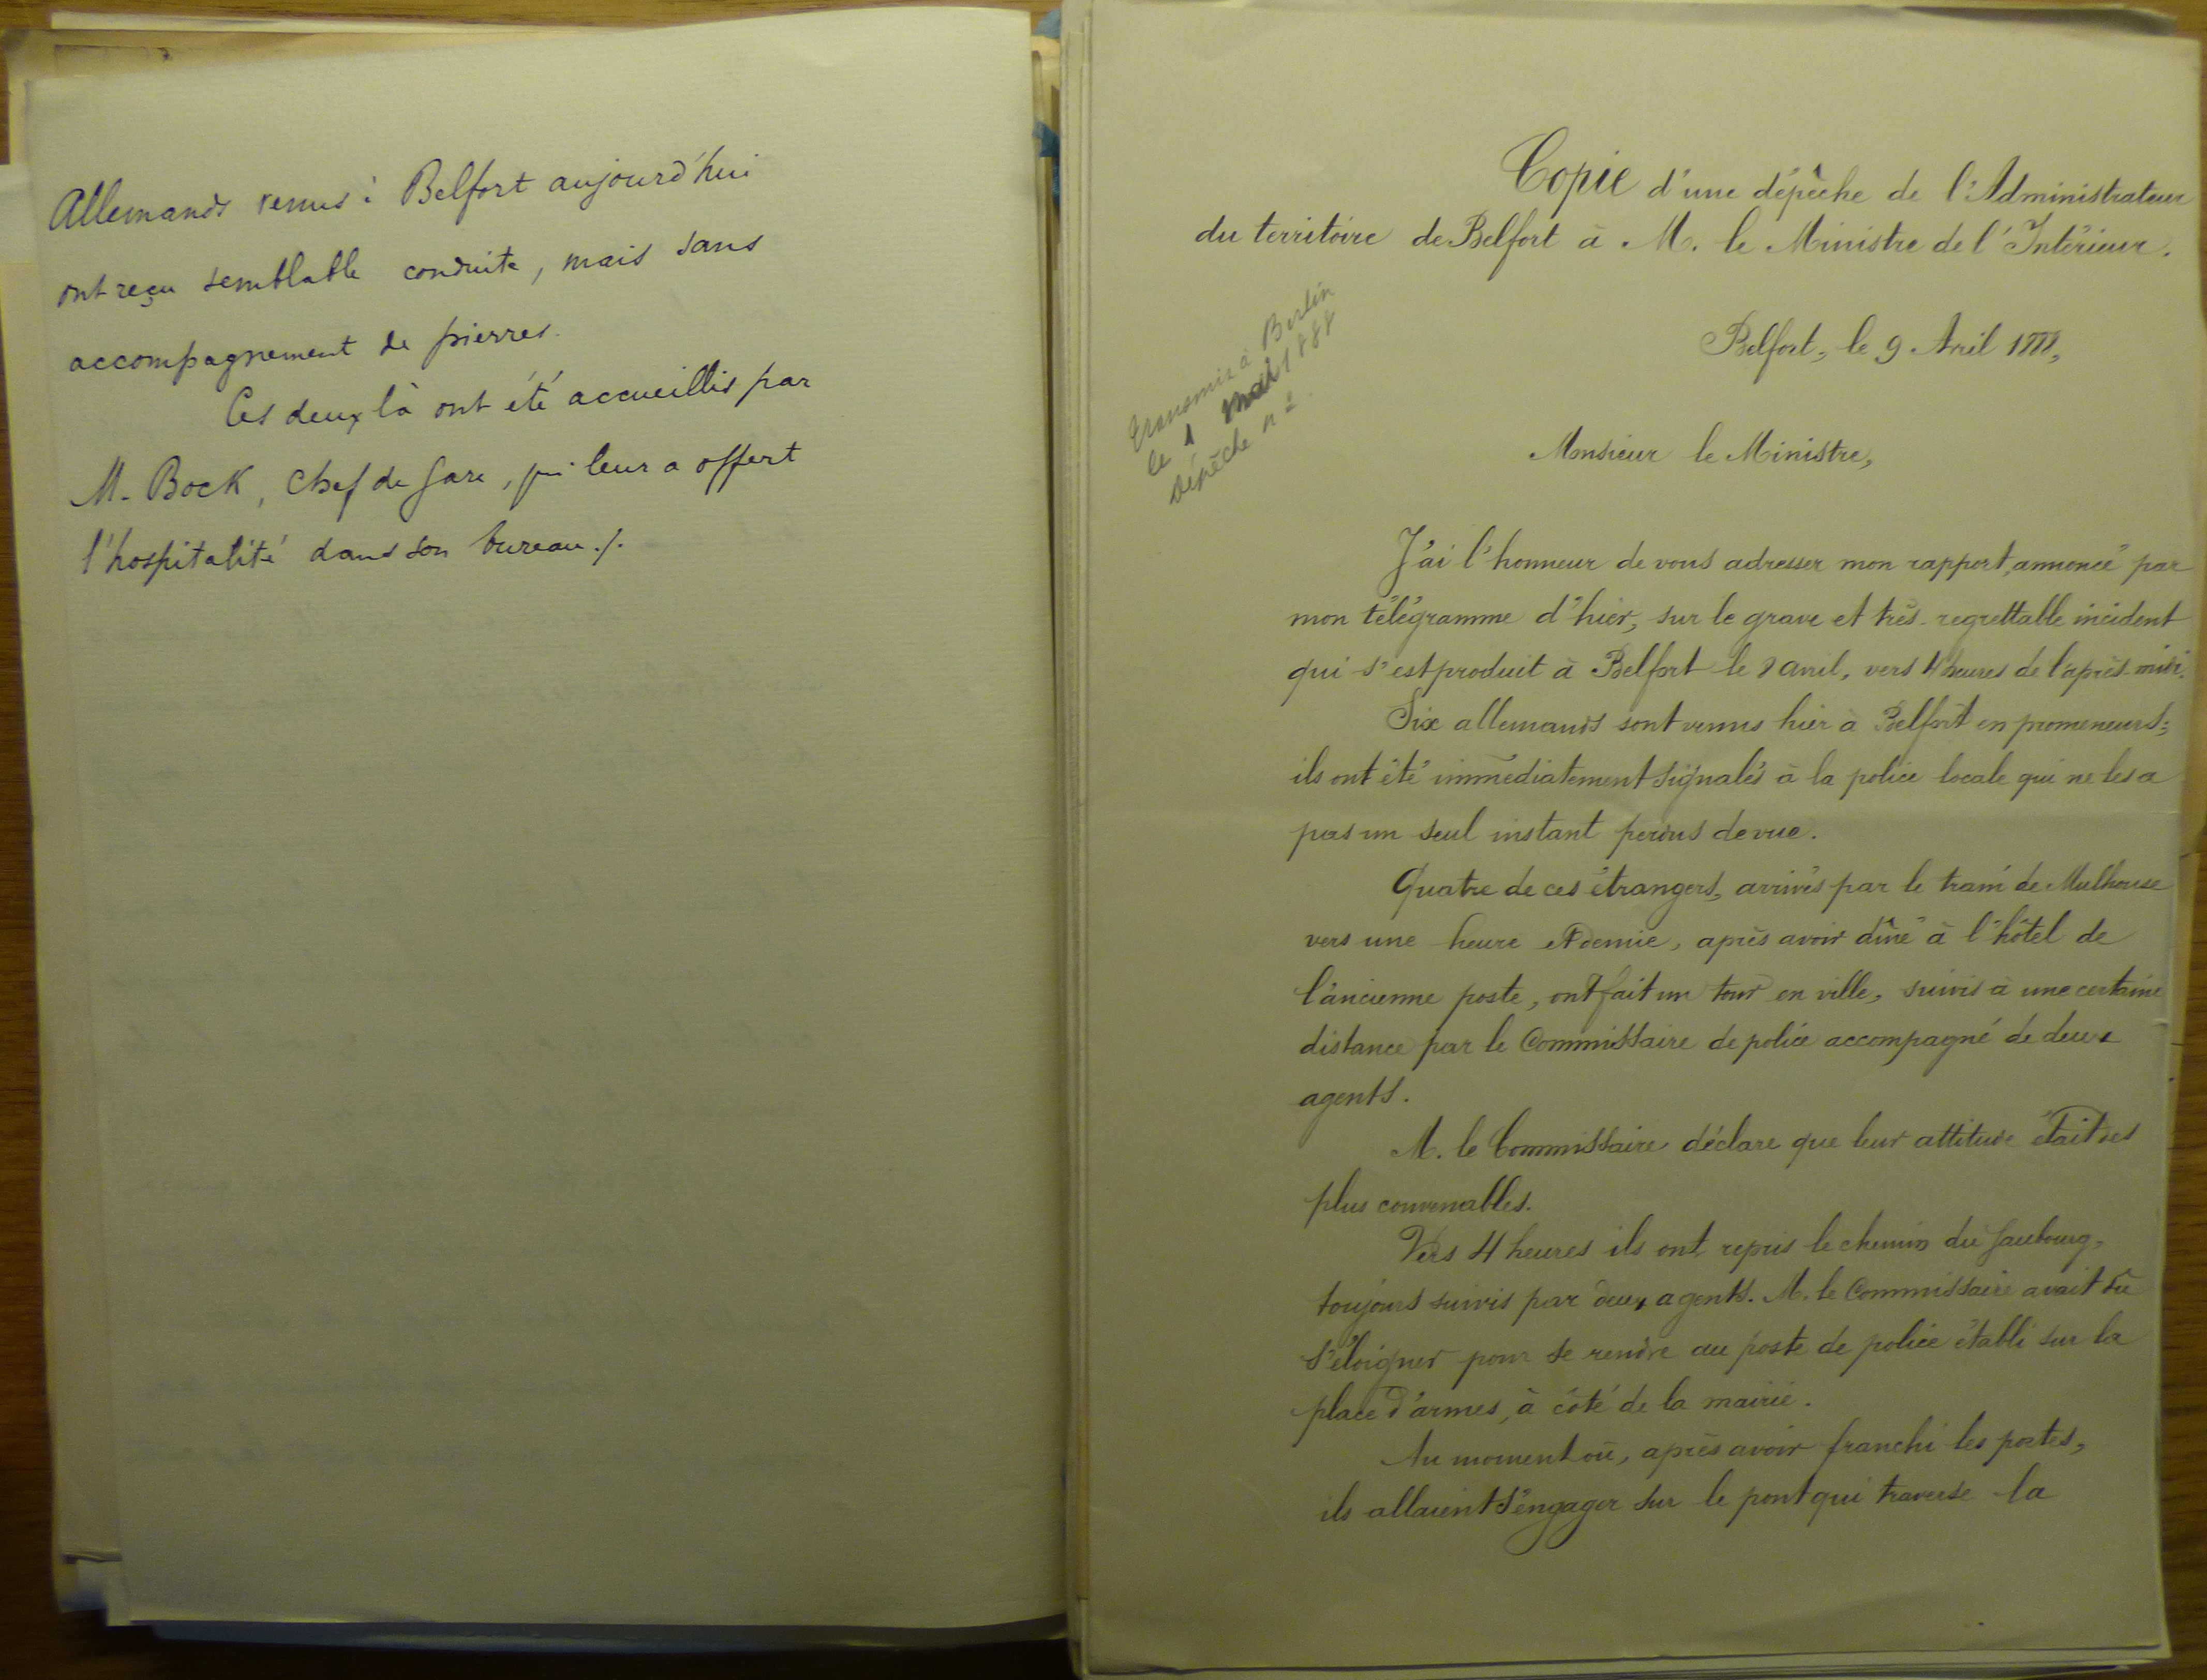 Allemands venus à Belfort aujourd'hui
ont reçu semblable conduite, mais sans
accompagnement de pierres.
Ces deux là ont été accueillis par
M. Bock, chef de gare, qui leur a offert
l'hospitalité dans son bureau ./.
Copie d'une dépêche de l'Administrateur
du territoire de Belfort à M. le Ministre de l'Intérieur.
transmis à Berlin
le 1 mai 1888
dépêche n°
Belfort, le 9 Avril 1888,
Monsieur le Ministre,
J'ai l'honneur de vous adresser mon rapport, annoncé par
mon télégramme d'hier, sur le grave et très-regrettable incident
qui s'est produit à Belfort le 8 avril, vers 4 heures de l'après-midi.
Six allemands sont venus hier à Belfort en promeneurs;
ils ont été immédiatement signalés à la police locale qui ne les a
pas un seul instant perdus de vue.
Quatre de ces étrangers, arrivés par le train de Mulhouse
vers une heure et demie, après avoir dîné à l'hôtel de
l'ancienne poste, ont fait un tour en ville, suivis à une certaine
distance par le Commissaire de police accompagné de deux
agents.
M. le Commissaire déclare que leur attitude était des
plus convenables.
Vers 4 heures ils ont repris le chemin du faubourg,
toujours suivis par deux agents. M. le Commissaire avait dû
s'éloigner pour se rendre au poste de police établi sur la
place d'armes, à côté de la mairie.
Au moment où, après avoir franchi les portes,
ils allaient s'engager sur le pont qui traverse la